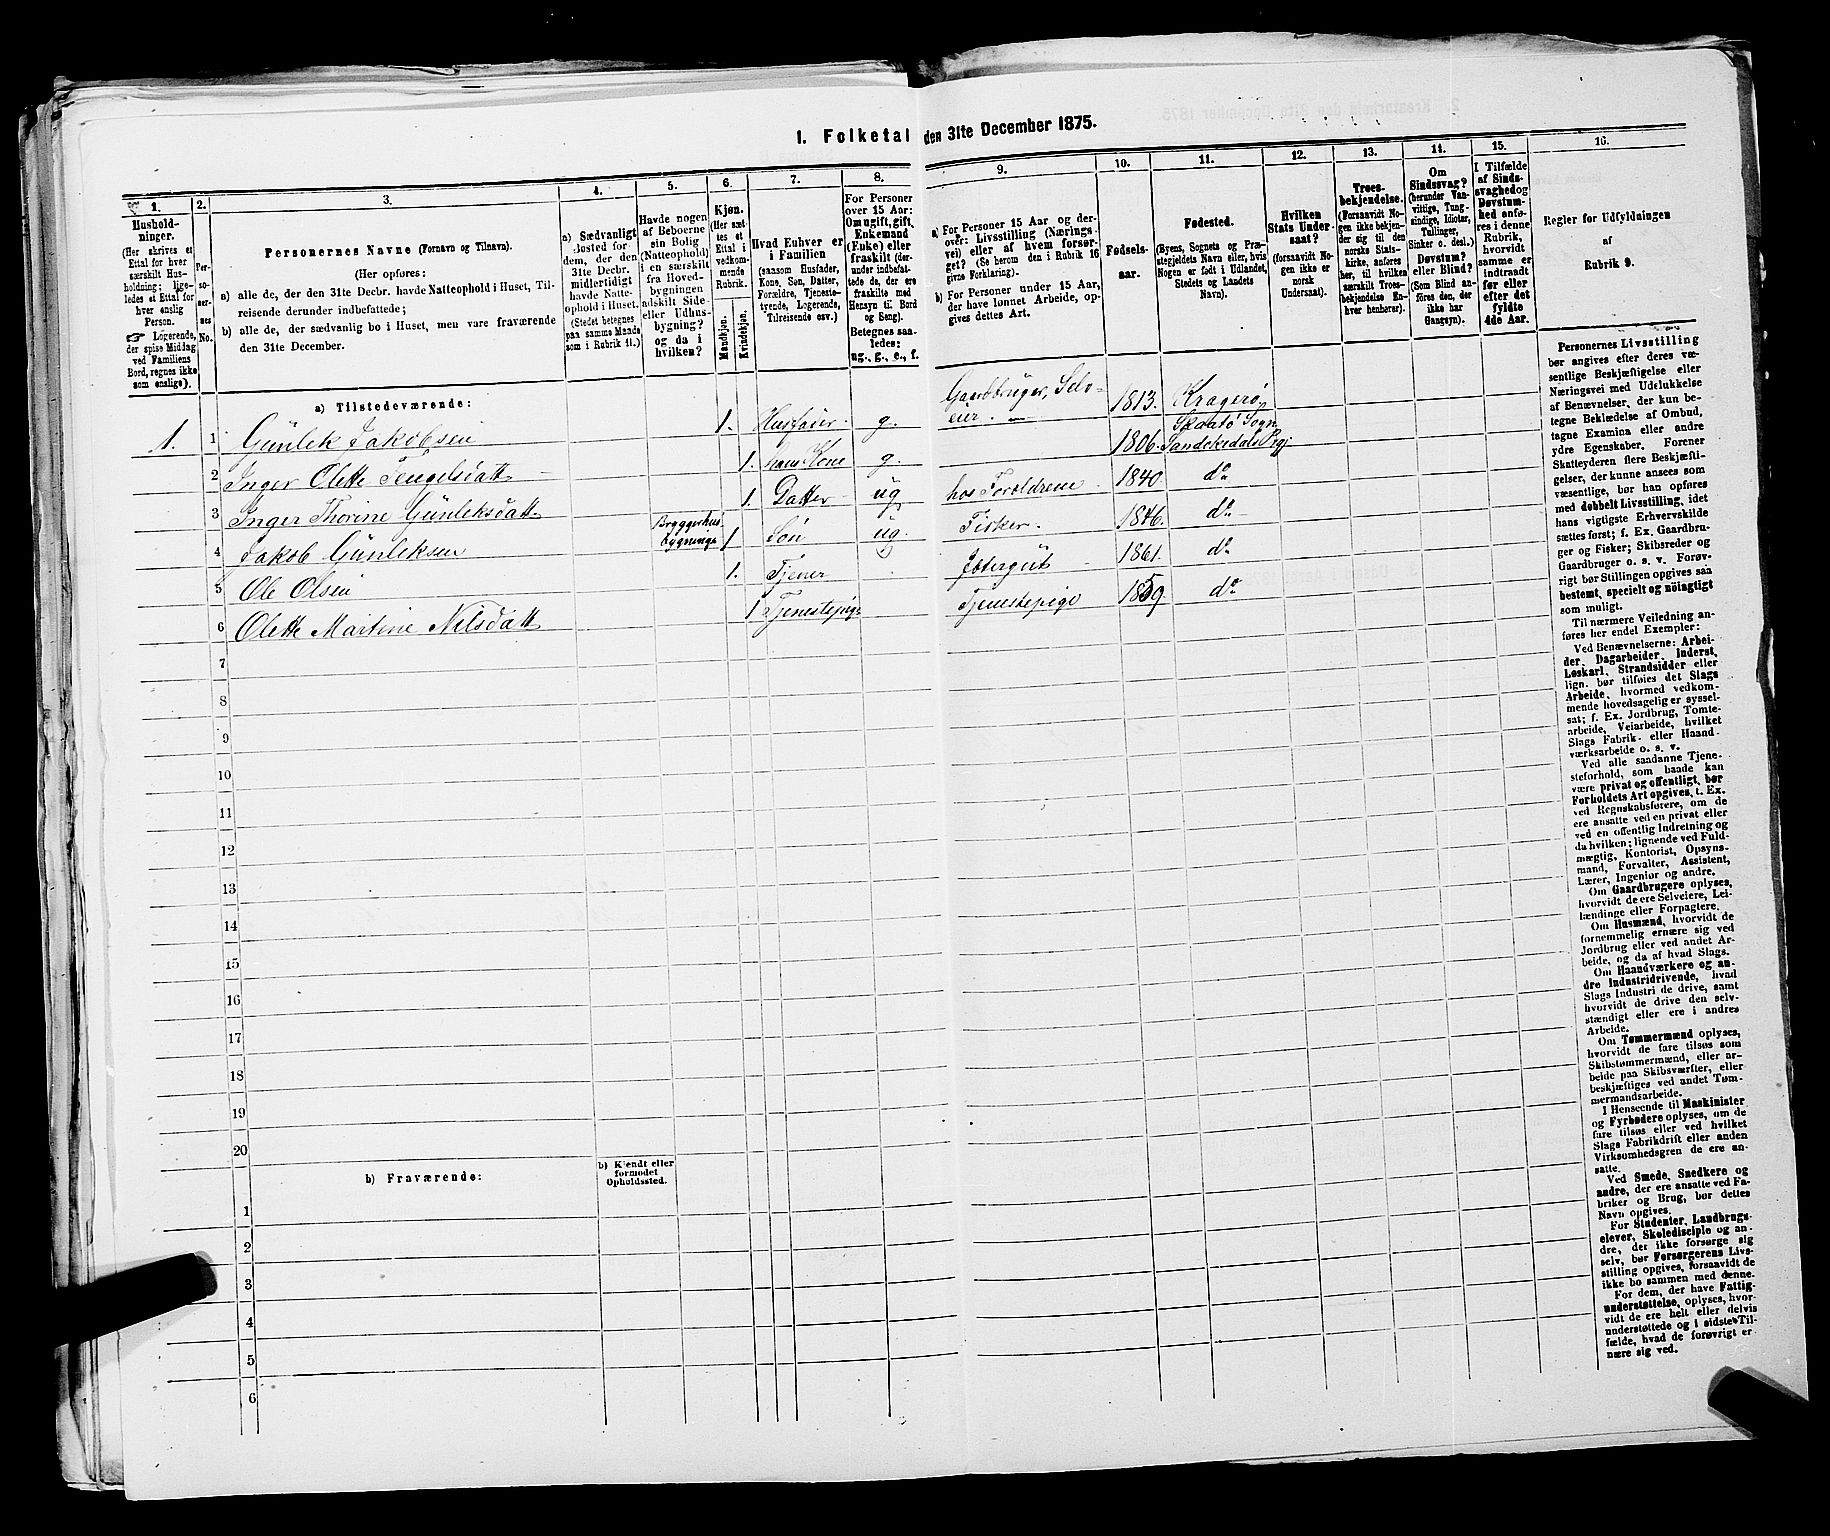 1. Folketal den 31te December 1875.
1.
Hushold-
ninger.
(Her skrives et
Ettal for hver
særskilt Hus-
holdning; lige-
ledes et Ettal for
hver enslig
Person.
☞ Logerende,
der spise Middag
ved Familiens
Bord, regnes ikke
som enslige).
2.
Per-
so-
ner-
nes
No.
3.
Personernes Navne (Fornavn og Tilnavn).
(Her opføres:
a) alle de, der den 31te Decbr. havde Natteophold i Huset, Til-
reisende derunder indbefattede;
b) alle de, der sædvanlig bo i Huset, men vare fraværende
den 31te December.
4.
a) Sædvanligt
Bosted for
dem, der den
31te Decbr.
midlertidigt
havde Natte-
ophold i Huset.
(Stedet betegnes
paa samme Maade
som i Rubrik 11.)
5.
Havde nogen
af Beboerne
sin Bolig
(Natteophold)
i en særskilt
fra Hoved-
bygningen
adskilt Side-
eller Udhus-
bygning?
og da i
hvilken?
6.
Kjøn.
(Her sæt-
tes et
Ettal i
vedkom-
mende
Rubrik.
Mandkjøn.
Kvindekjøn.
7.
Hvad Enhver er
i Familien
(saasom Husfader,
Kone, Søn, Datter,
Forældre, Tjeneste-
tyende, Logerende,
Tilreisende osv.)
8.
For Personer
over 15 Aar:
Om ugift, gift,
Enkemand
(Enke) eller
fraskilt (der-
under indbefat-
tede de, der ere
fraskilte med
Hensyn til Bord
og Seng).
Betegnes saa-
ledes:
ug., g., e., f.
9.
a) For Personer 15 Aar og der-
over: Livsstilling (Nærings-
vei) eller af hvem forsør-
get? (Se herom den i Rubrik 16
givne Forklaring).
b) For Personer under 15 Aar,
der have lønnet Arbeide, op-
gives dettes Art.
10.
Fødsels-
aar.
11.
Fødested.
(Byens, Sognets og Præ-
stegjeldets Navn eller, hvis
Nogen er født i Udlandet,
Stedets og Landets
Navn).
12.
Hvilken
Stats Under-
saat?
(forsaavidt No-
gen ikke er
norsk
Undersaat).
13.
Troes-
bekjendelse.
(Forsaavidt No-
gen ikke bekjen-
der sig til den
norske Stats-
kirke, anføres
her, til hvilken
særskilt Troes-
bekjendelse En-
hver henhører).
14.
Om
Sindssvag?
(herunder Van-
vittige, Tung-
sindige, Idioter,
Tullinger,
Sinker o. desl.)
Døvstum?
eller Blind?
(Som Blind an-
føres den, der
ikke har
Gangsyn).
15.
I Tilfælde
af Sinds-
svaghed og
Døvstum-
hed anfø-
res i denne
Rubrik,
hvorvidt
samme er
indtraadt
før eller
efter det
fyldte
4de Aar.
16.
Regler for Udfyldningen
af
Rubrik 9.
a) Tilstedeværende:
1. 1 Gunlek Jakobsen 1. Husfader g. Gaardbruger, Selv-
eier 1813. Kragerø,
Skaatø Sogn
2 Inger Olette Tengelsdatt 1. hans Kone g. 1806. Sandekedals Prgj
3 Inger Thorine Gunleksdatt 1. Datter ug hos Foroldrene 1840 do
4 Jakob Gunleksen Bryggerhus
bygninge 1 Søn ug. Fisker. 1846. do
5 Ole Olsen 1. Tjener Jetergut 1861. do
6 Olette Martine Nilsdatt 1 Tjenestepige Tjenestepige 1859. do
7
8
9
10
11
12
13
14
15
16
17
18
19
20
b) Fraværende:
b) Kjendt eller
formodet
Opholdssted.
1
2
3
4
5
6
Personernes Livsstilling
bør angives efter deres væ-
sentlige Beskjæftigelse eller
Næringsvei med Udelukkelse
af Benævnelser, der kun be-
tegne Beklædelse af Ombud,
tagne Examina eller andre
ydre Egenskaber. Forener
Skatteyderen flere Beskjæfti-
gelser, der kunne ansees som
væsentlige, bør han opføres
med dobbelt Livsstilling, idet
hans vigtigste Erhvervskilde
sættes først; f. Ex. Gaardbru-
ger og Fisker; Skibsreder og
Gaardbruger o. s. v. Forøv-
rigt bør Stillingen opgives saa
bestemt, specielt og nøiagtigt
som muligt.
Til nærmere Veiledning an-
føres her endel Exempler:
Ved Benævnelserne: Arbei-
der, Dagarbeider, Inderst,
Løskarl, Strandsidder eller
lign. bør tilføies det Slags
Arbeide, hvormed vedkom-
mende hovedsagelig er syssel-
sat; f. Ex. Jordbrug, Tomte-
arbeide, Veiarbeide, hvilket
Slags Fabrik- eller Haand-
værksarbeide o. s. v.
Ved alle saadanne Tjene-
steforhold, som baade kan
være privat og offentligt, bør
Forholdets Art opgives, t. Ex.
ved Regnskabsførere, om de
ere ansatte ved en privat eller
ved en offentlig Indretning og
da hvilken; lignende ved Fuld-
mægtig, Kontorist, Opsyns-
mand, Forvalter, Assistent,
Lærer, Ingeniør og andre.
Om Gaardbrugere oplyses,
hvorvidt de ere Selveiere, Lei-
lændinge eller Forpagtere.
Om Husmænd, hvorvidt de
fornemmelig ernære sig ved
Jordbrug eller ved andet Ar-
beide, og da af hvad Slags.
Om Haandværkere og an-
dre Industridrivende, hvad
Slags Industri de drive, samt
hvorvidt de drive den selv-
stændigt eller ere i andres
Arbeide.
Om Tømmermænd oplyses,
hvorvidt de fare tilsøs som
Skibstømmermænd, eller ar-
beide paa Skibsværfter, eller
beskjæftiges ved andet Tøm-
mermandsarbeide.
I Henseende til Maskinister
og Fyrbødere oplyses, om de
fare tilsøs eller ved hvilket
Slags Fabrikdrift eller anden
Virksomhedsgren de ere an-
satte.
Ved Smede, Snedkere og
andre, der ere ansatte ved Fa-
briker og Brug, bør dettes
Navn opgives.
For Studenter, Landbrugs-
elever, Skoledisciple og an-
dre, der ikke forsørge sig
selv, bør Forsørgerens Livs-
stilling opgives, forsaavidt de
ikke bo sammen med denne.
For dem, der have Fattig-
understøttelse, oplyses, hvor-
vidt de ere helt eller delvis
understøttede og i sidste Til-
fælde, hvad de forøvrigt er
nære sig ved.